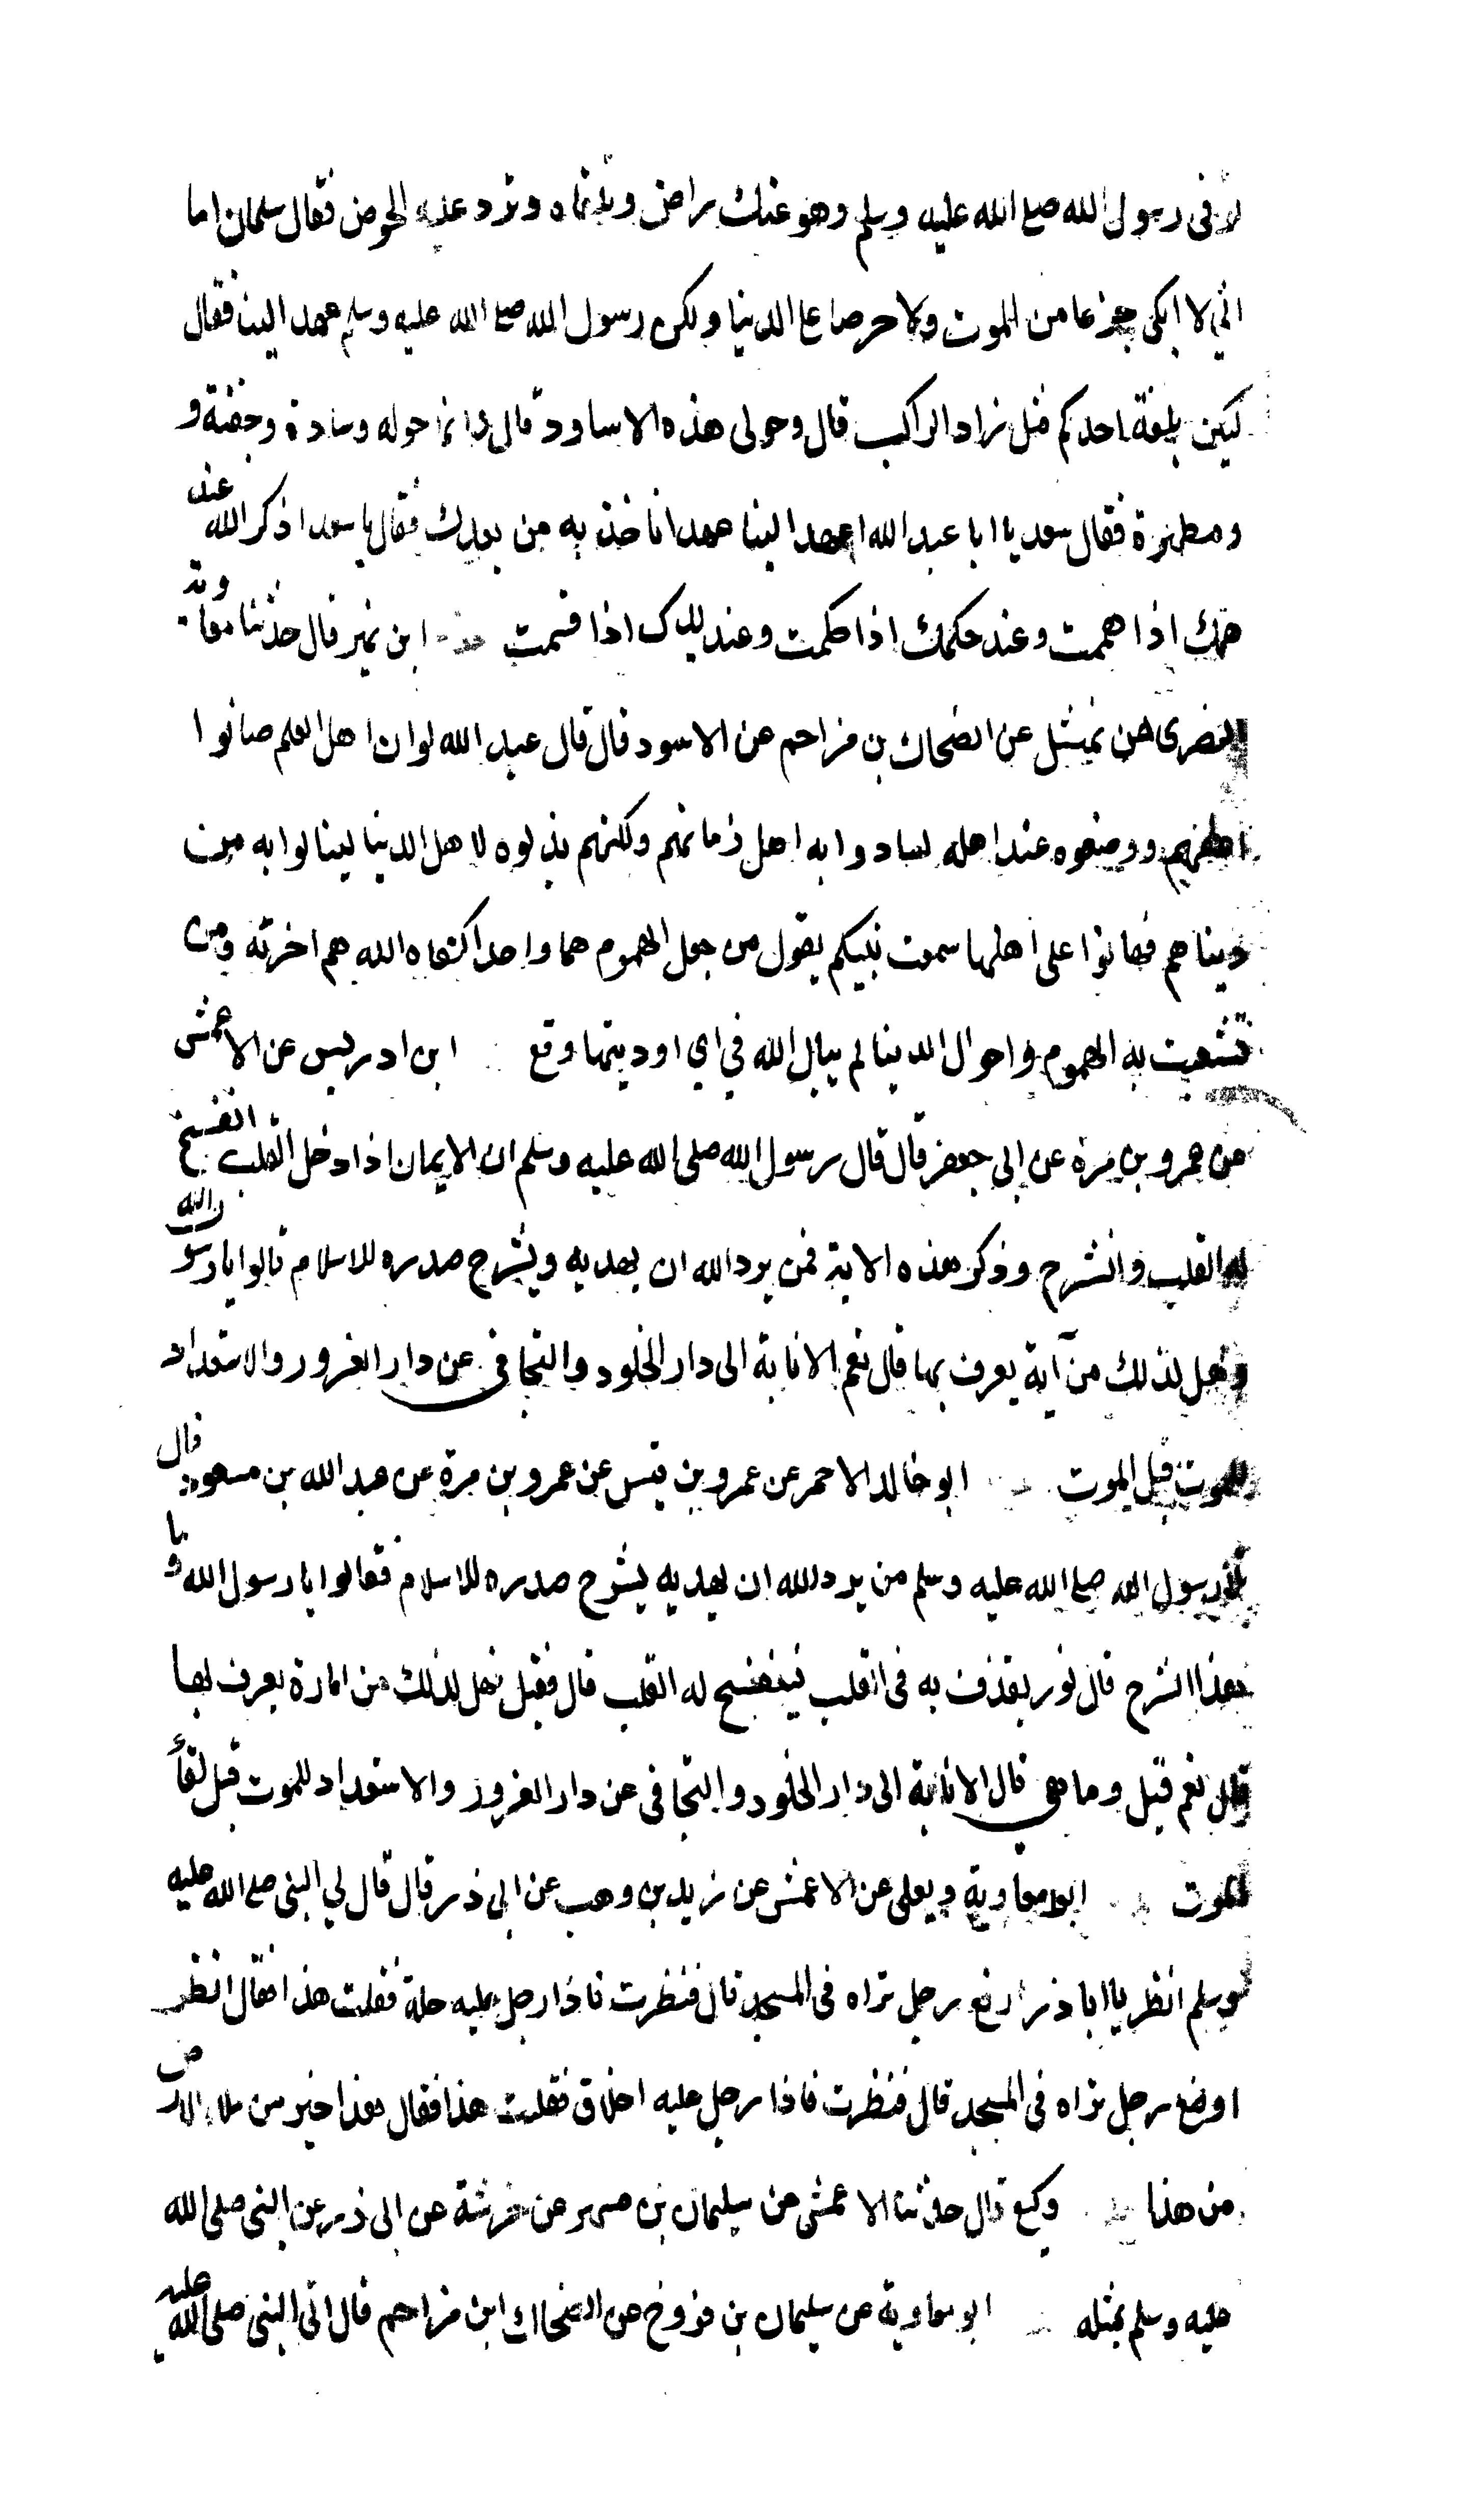 توفى رسول الله صلع الله عليه وسلم وهو عنك راض وتلقاه وترد عليه الحوض فقال سلمان اما
اني لا ابكى جزعا من الموت ولا حرصا ع الدنيا ولكن رسول الله صلع الله عليه وسلم عهد الينا فقال
ليكن بلغة احدكم مثل زاد الراكب قال وحولى هذه الاساود قال وانما حوله وسادة وجفنة و
ومطهرة فقال سعد يا ابا عبد الله اعهد الينا عهدا ناخذ به من بعدك فقال يا سعد اذكر الله عند
همك اذا هممت وعند حكمك اذا حكمت وعند يدك اذا قسمت ابن نمير قال حدثنا معاوية
النضرى عن نهشل عن الضحاك بن مزاحم عن الاسود قال قال عبد الله لو ان اهل العلم صانوا
علمهم ووضعوه عند اهله لسادوا به اهل زمانهم ولكنهم بذلوه لاهل الدنيا لينالوا به من
دنياهم فهانوا على اهلها سمعت نبيكم يقول من جعل الهموم هما واحدا كفاه الله هم اخرته ومن
تشعبت به الهموم واحوال الدنيا لم يبال الله في اي اوديتها وقع ابن ادريس عن الاعمش
عن عمرو بن مرة عن ابى جعفر قال قال رسول الله صلى الله عليه وسلم ان الايمان اذا دخل القلب انفسح
له القلب وانشرح وذكر هذه الاية فمن يرد الله ان يهديه ويشرح صدره للاسلام قالوا يا رسول الله
وهل لذلك من آية يعرف بها قال نعم الانابة الى دار الخلود والتجافى عن دار الغرور والاستعداد
للموت قبل الموت ابو خالد الاحمر عن عمرو بن قيس عن عمرو بن مرة عن عبد الله بن مسعود قال
رسول الله صلع الله عليه وسلم من يرد الله ان يهديه يشرح صدره للاسلام فقالوا يا رسول الله وما
هذا الشرح قال نور يقذف به فى القلب فينفسح له القلب قال فقيل فهل لذلك من امارة يعرف بها
قال نعم قيل وما هى قال الانابة الى دار الخلود والتجافى عن دار الغرور والاستعداد للموت قبل لقأ
الموت ابو معاوية ويعلى عن الاعمش عن زيد بن وهب عن ابى ذر قال قال لي النبى صلع الله عليه
وسلم انظر يا ابا ذر ارفع رجل تراه فى المسجد قال فنظرت فاذا رجل عليه حلة فقلت هذا فقال انظر
اوضع رجل تراه فى المسجد قال فنظرت فاذا رجل عليه اخلاق فقلت هذا فقال هذا خير من ملاء الارض
من هذا وكيع قال حدثنا الاعمش عن سليمان بن مسهر عن خرشة عن ابى ذر عن النبى صلى الله
عليه وسلم بمثله ابو معاوية عن سليمان بن فروخ عن الضحاك ابن مزاحم قال اتى النبى صلى الله عليه